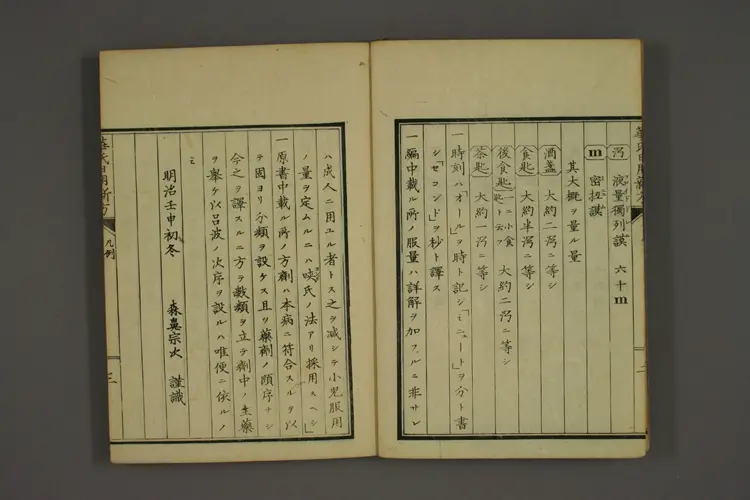 液量獨列謨 六十m
m 密扭謨
其大概ヲ量ル量
酒盞 大約二㕮ニ等シ
食匙 大約半㕮ニ等シ
後食匙 一ニ小食匙ト云フ 大約二㕮ニ等シ
茶匙 大約一㕮ニ等シ
一時刻ハ「オール」ヲ時ト記シ「ミニュート」ヲ分ト書
シ「セコンド」ヲ秒ト譯ス
一編中載ル所ノ服量ハ詳解ヲ加フルニ非サレ
ハ成人ニ用ユル者トス之ヲ減シテ小兒服用
ノ量ヲ定ムルニハ氏ノ法アリ採用スヘシ
一原書中載ル所ノ方劑ハ本病ニ符合スルヲ以
テ固ヨリ分類ヲ設ケス且ツ藥劑ノ順序ナシ
今之ヲ譯スルニ方テ數類ヲ立テ劑中ノ主藥
ヲ擧ケ以呂波ノ次序ヲ設ルハ唯便ニ依ルノ
ミ
明治壬申初冬
森嶌宗次 謹識
華氏日用新方
凡例
三